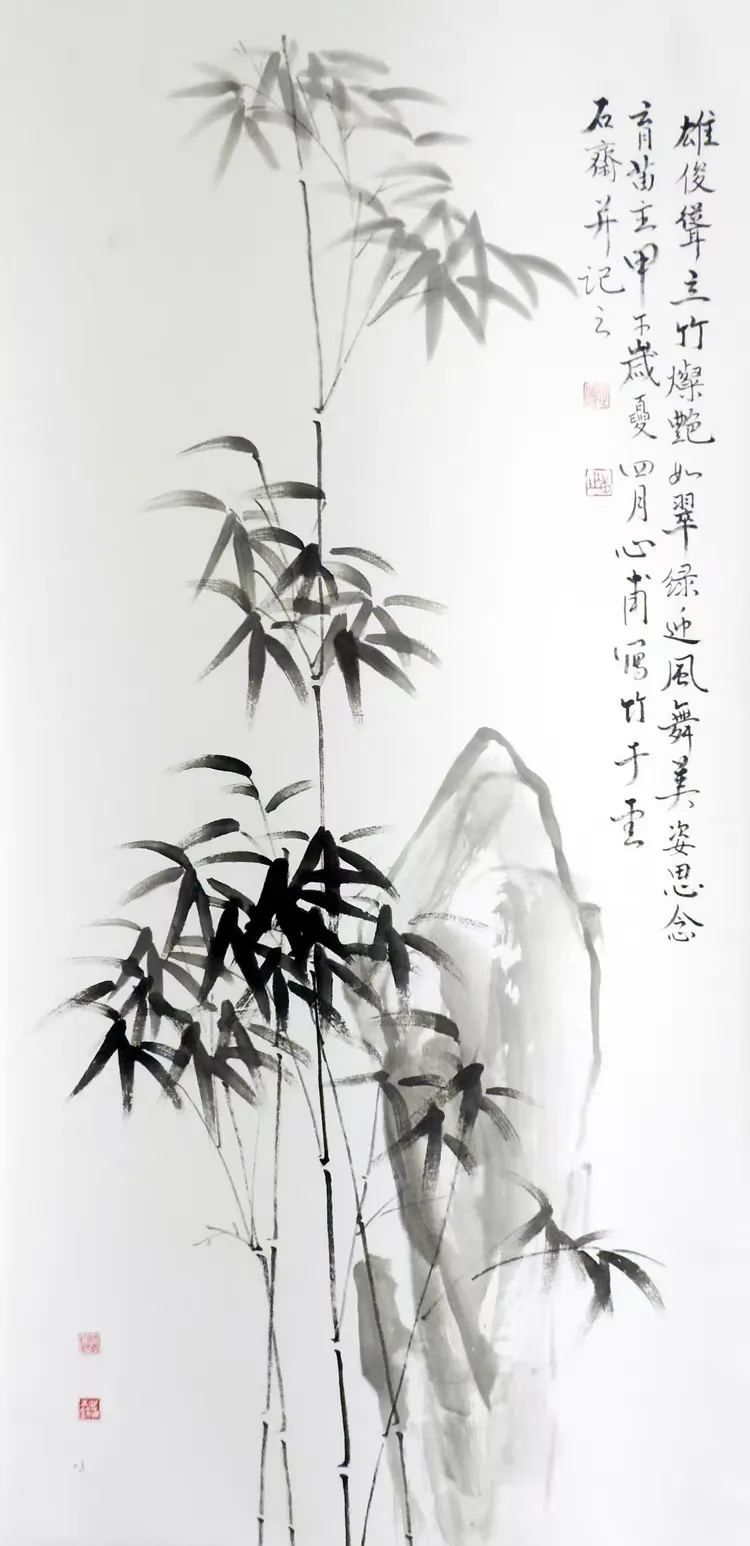 雄俊聳立竹燦艷如翠绿迎風舞美姿思念
育苗主甲午歲夏四月心甫寫竹于雲
石齋并记之